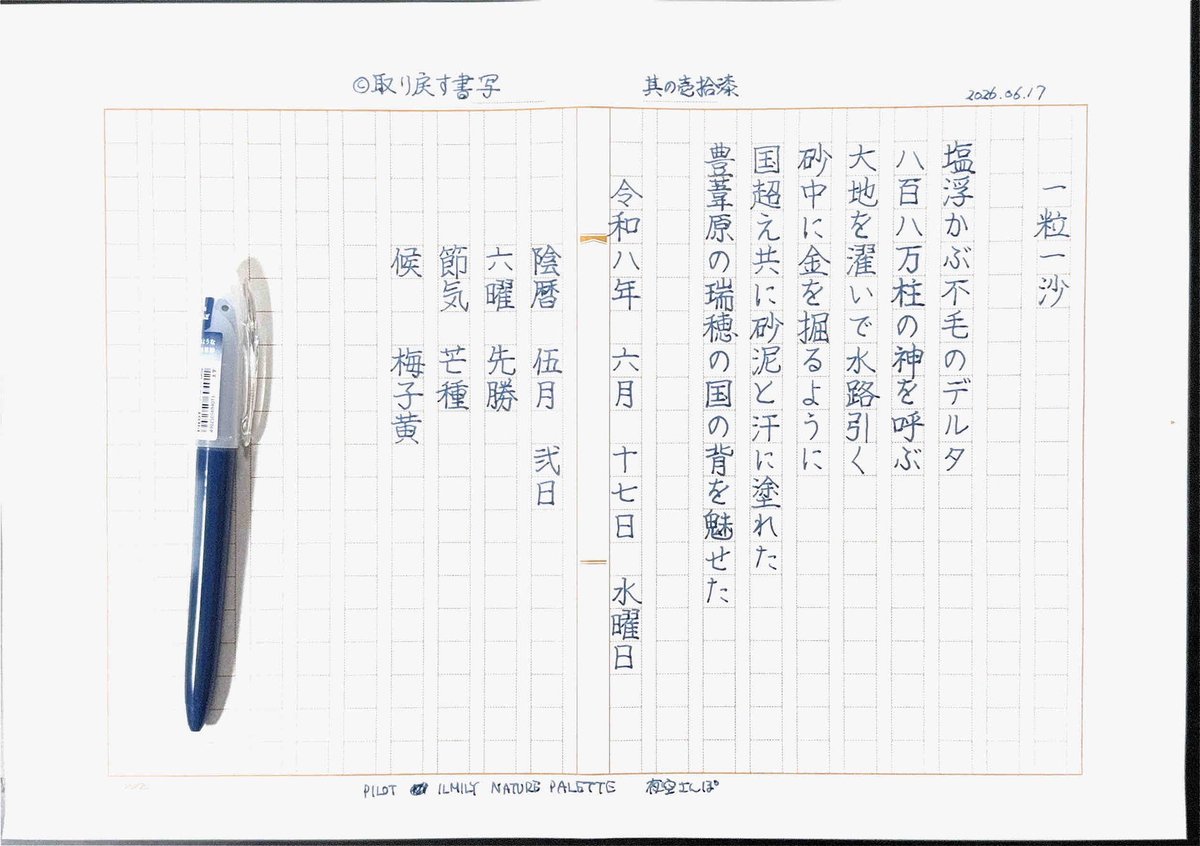 ©取り戻す書写
其の壱拾漆
2026.06.17
一粒一沙
塩浮かぶ不毛のデルタ
八百八万柱の神を呼ぶ
大地を濯いで水路引く
砂中に金を掘るように
国超え共に砂泥と汗に塗れた
豊葦原の瑞穂の国の背を魅せた
令和八年 六月 十七日 水曜日
陰暦 伍月 弐日
六曜 先勝
節気 芒種
候 梅子黄
PILOT ILMILY NATURE PALETTE 夜空さんぽ